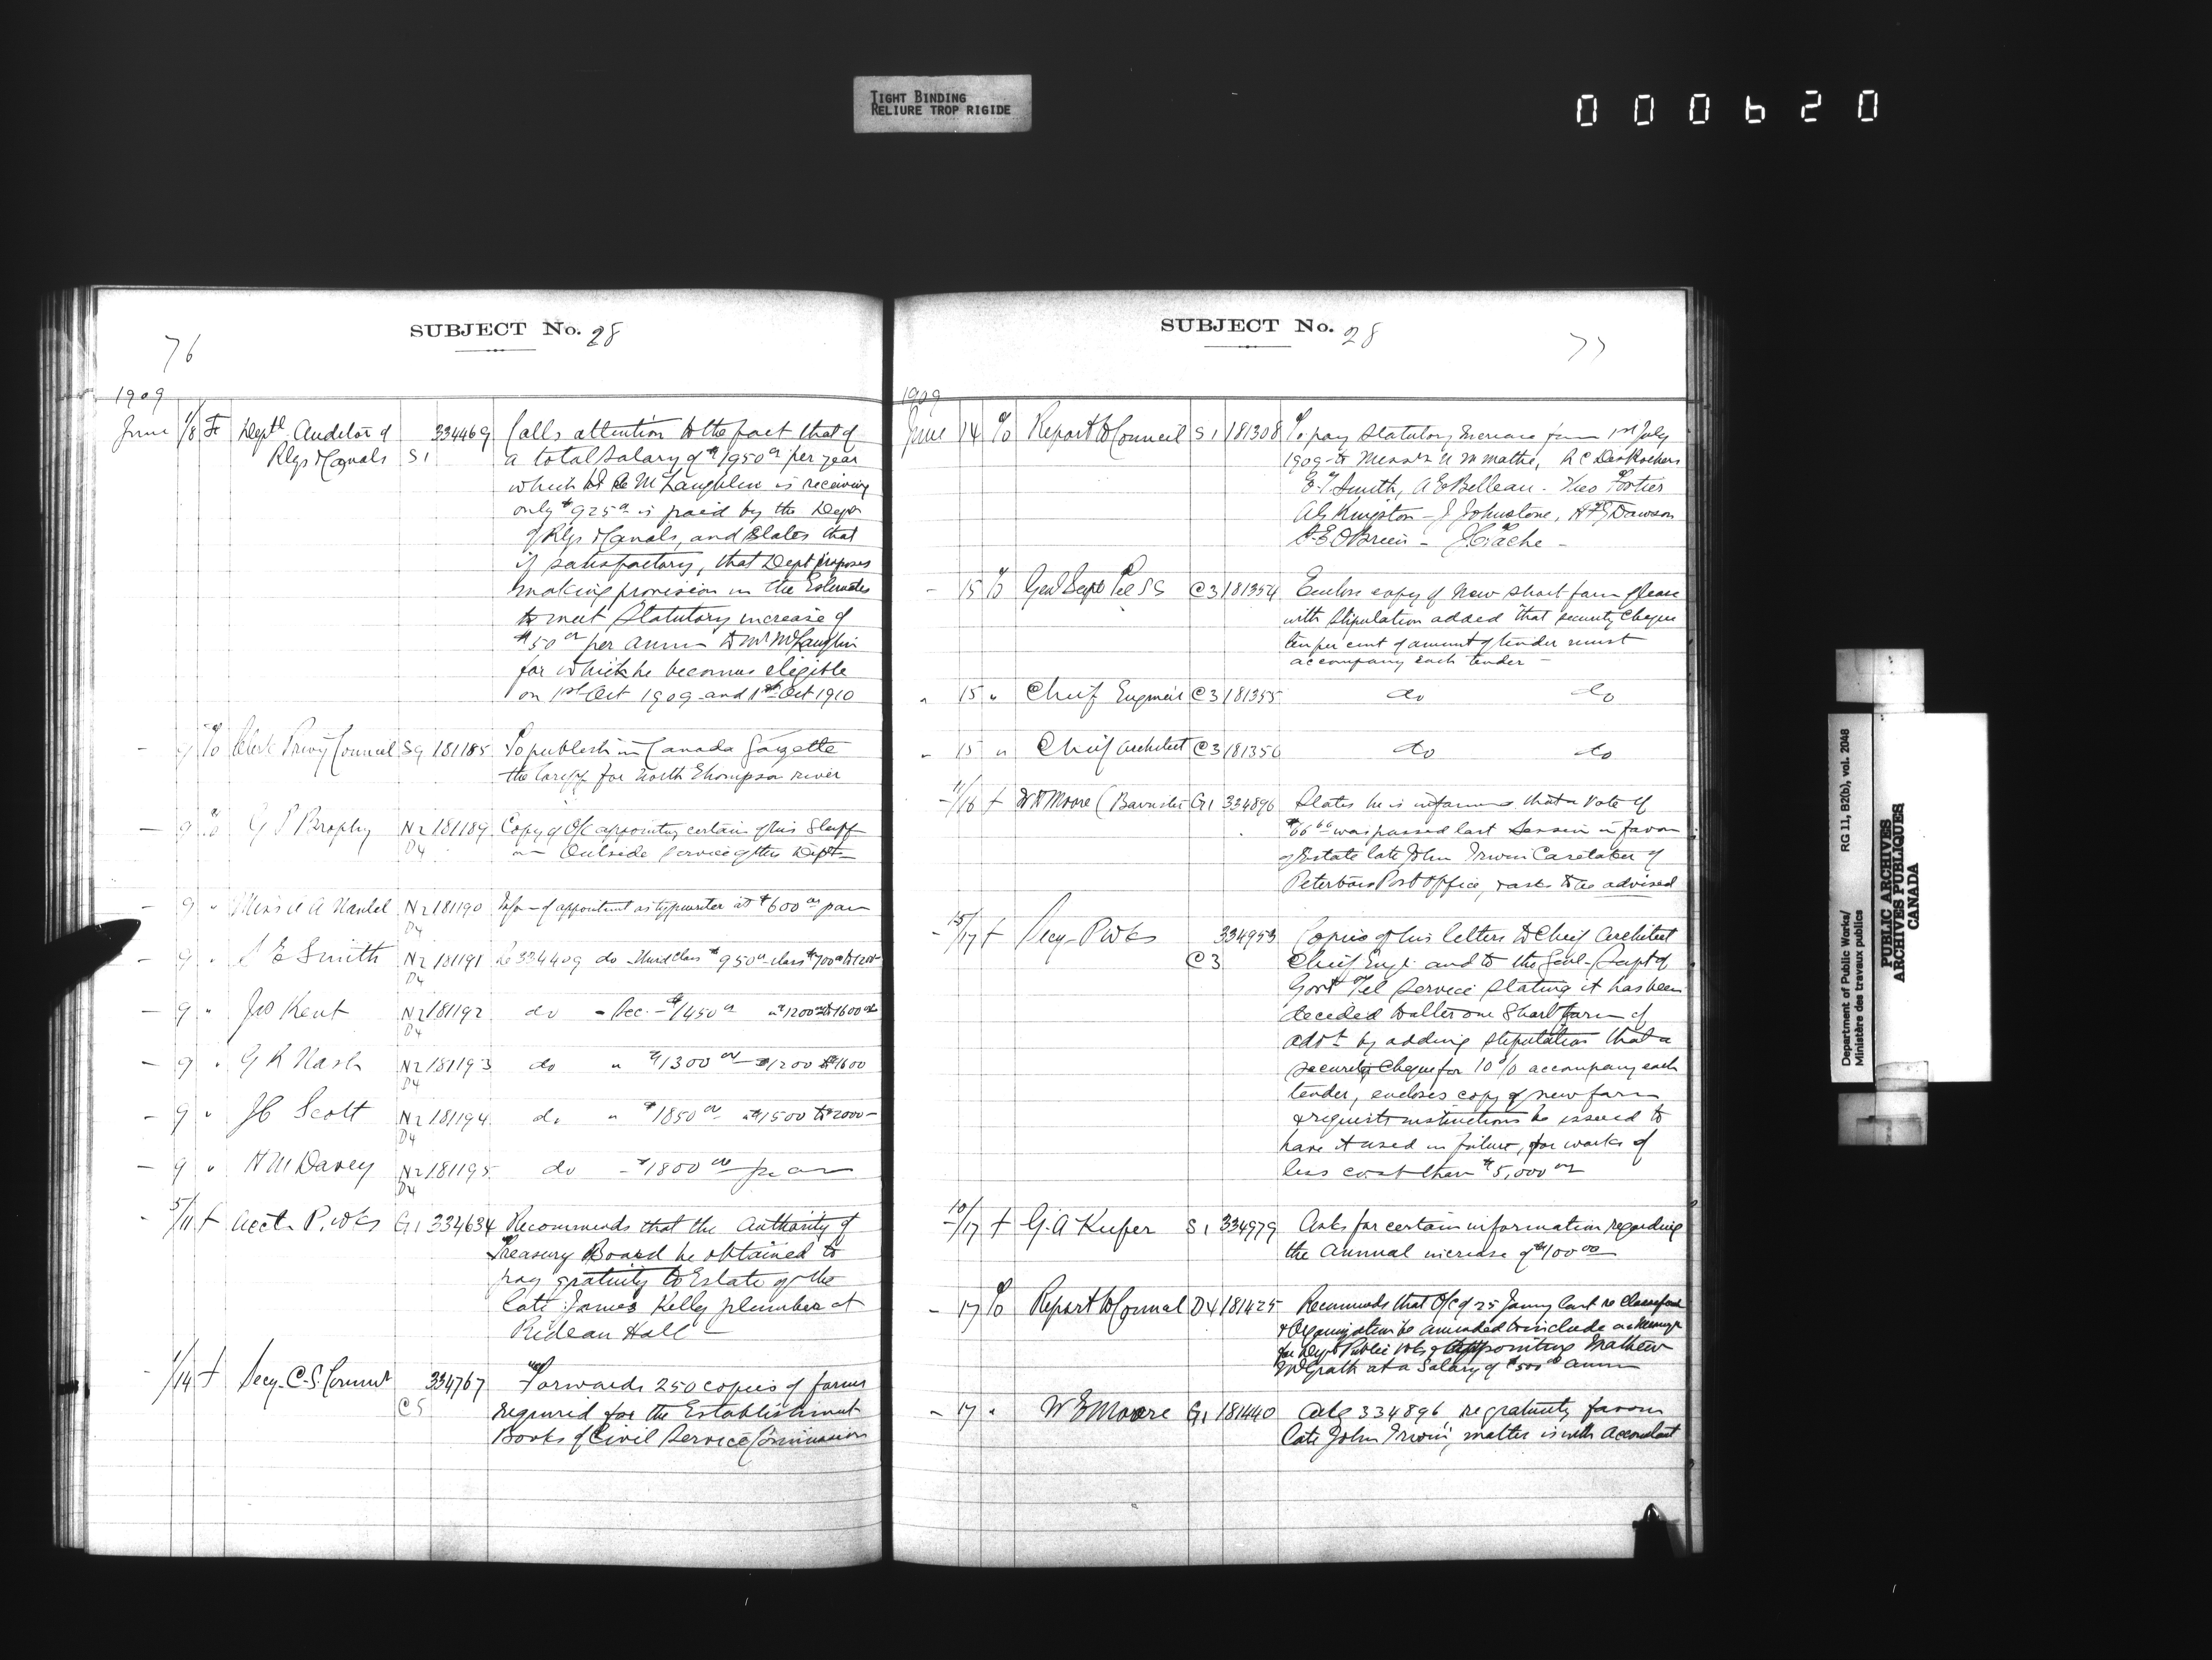 TIGHT BINDING
RELIURE TROP RIGIDE
000620
SUBJECT No. 28
76
1909
June 1/8 Deptl Auditor of 334469 Calls attention to the fact that of
Rlys & Canals S1 a total salary of $1950 00 per year
which McLaughlin is receiving
only $925 00 is paid by the Dept
of Rlys & Canals, and States that
if satisfactory, that Dept proposes
making provision in the Estimates
to meet Statutory increase of
$50 00 per annum to Mr McLaughlin
for which he becomes eligible
on 1st Oct 1909 and 1st Oct 1910
- 9 % Clerk Privy Council S9 181185 To publish in Canada Gazette
the tariff for North Thompson river
- 9 % G P Brophy N2 181189 Copy of O/C appointing certain of his Staff
D4 Outside Service of this Dept
- 9 " Miss A A N2 181190 of appointment as typewriter at $600 00 p an
D4
- 9 " S E Smith N2 181191 Re 334409 do Third Class $950 00 class $700 00 to 1200
D4
- 9 " Jno Kent N2 181192 do - Sec. - $1450 00 1200 to 1600
D4
- 9 " G R Nash N2 181193 do " $1300 00 1200 to 1600
D4
- 9 " J C Scott N2 181194 do " $1850 00 $1500 to $2000
D4
- 9 " H M Davey N2 181195 do - $1800 00 per an
D4
- 5/11 f Acct P. Wks G1 334634 Recommends that the Authority of
Treasury Board be obtained to
pay gratuity to Estate of the
late James Kelly plumber at
Rideau Hall
- 1/14 f Secy C.S. Commn 334767 Forwards 250 copies of forms
C5 required for the Establishment
Books of Civil Service Commission
SUBJECT No. 28
77
1909
June 14 % Report to Council S1 181308 To pay Statutory Increase from 1st July
1909 to Messrs U M Mathe, R C DesRochers
E T Smith, A E Belleau - Theo Fortier
A G Kingston - J Johnstone, Dawson
S E O'Brien -
- 15 % Genl Supt Tel SS C3 181354 Enclose copy of new short form
with stipulation added that security cheque
ten per cent of amount of tender must
accompany each tender -
" 15 " Chief Engineer C3 181355 do do
- 15 " Chief Architect C3 181356 do do
- 11/16 f W H Moore (Barrister G1 334896 States he is informed that a Vote of
$66 66 was passed last Session in favor
of Estate late John Irwin Caretaker of
Peterboro Post Office, & asks to be advised
- 15/17 f Secy P Wks 334953 Copies of his letters to Chief Architect
C3 Chief Engr and to the Genl Supt of
Govt Tel Service Stating it has been
decided to alter our Short form of
advt by adding stipulation that a
security cheque for 10% accompany each
tender, encloses copy of new form
& requests instructions be issued to
have it used in future, for works of
less cost than $5,000 00
- 10/17 f G. A Keefer S1 334979 Asks for certain information regarding
the annual increase of $100 00
- 17 % Report to Council D4 181425 Recommends that O/C of 25 Janry last re
& Organization be amended to include a
for Dept Public Wks & appointing Mathew
McGrath at a Salary of $500 00 annum
- 17 " W H Moore G1 181440 334896 re gratuity favour
late John Irwin, matter is with Accountant
Department of Public Works/
Ministère des travaux publics
RG 11, B2(b), vol. 2048
PUBLIC ARCHIVES
ARCHIVES PUBLIQUES
CANADA